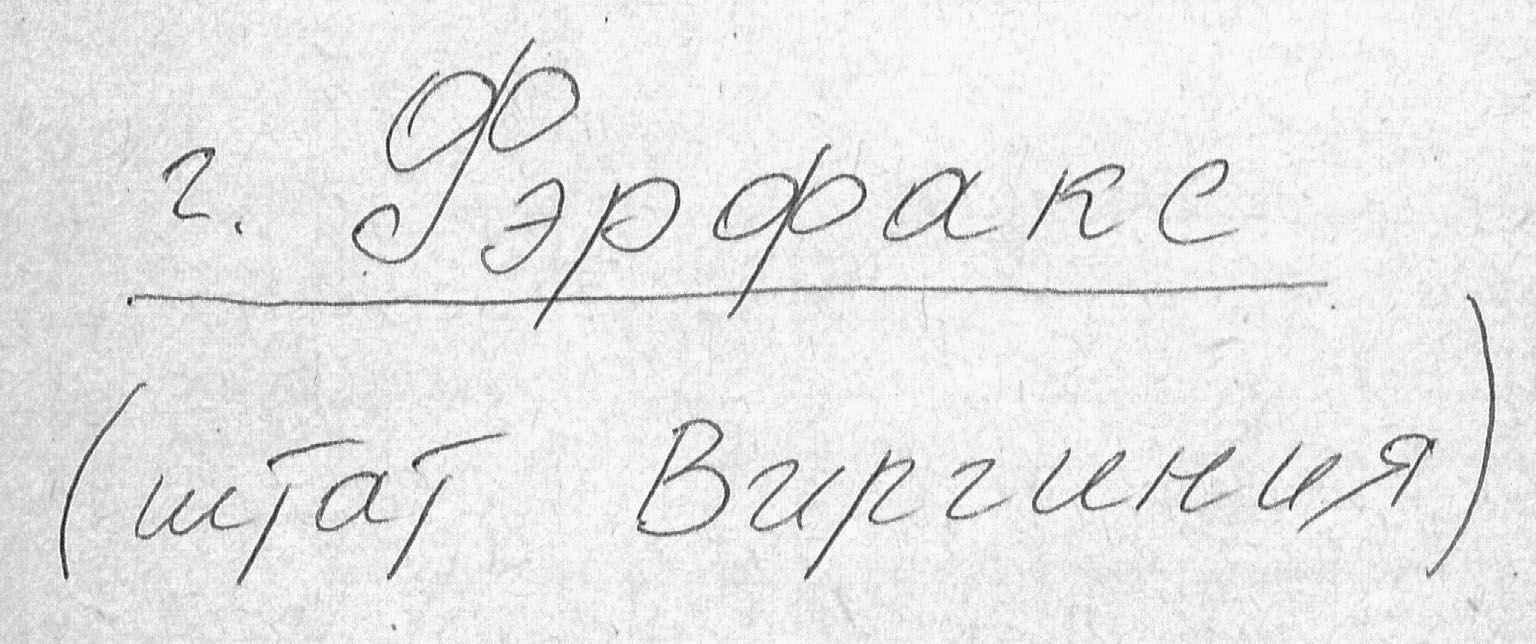 г. Фэрфакс
(штат Виргиния)